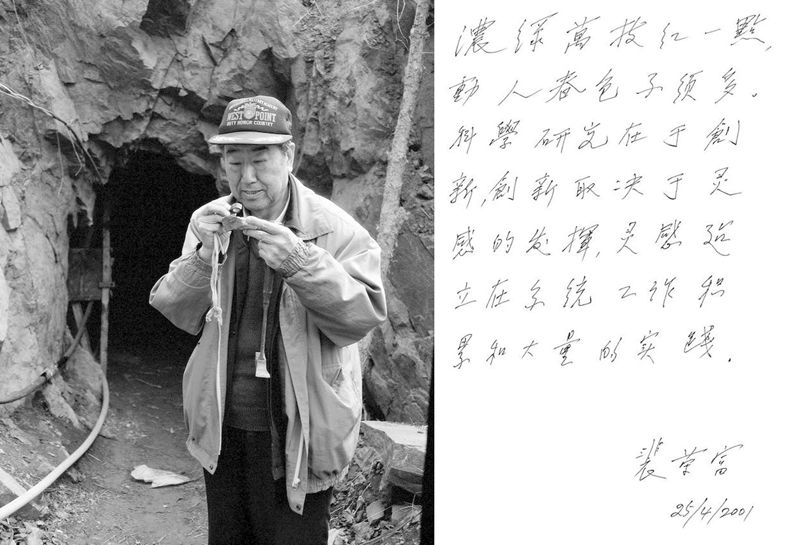 WEST POINT
DUTY HONOR COUNTRY
濃绿萬枝红一點,
動人春色不须多.
科學研究在于創
新,創新取决于灵
感的发揮,灵感建
立在系统工作积
累和大量的实践.
裴荣富
25/4/2001